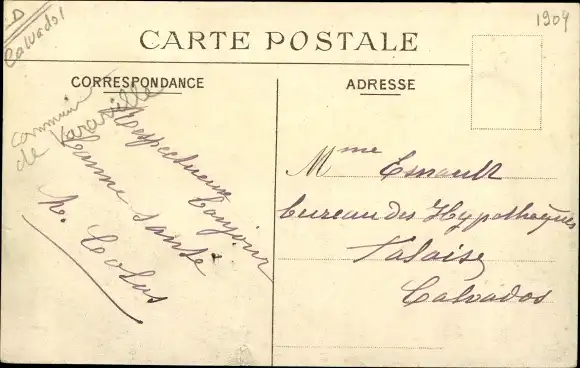 D
Calvados
1909
CARTE POSTALE
CORRESPONDANCE
ADRESSE
commune
de Varaville
Respectueux bonjour
Bonne santé
H. Colas
Mme Esnault
bureau des Hypothèques
Falaise
Calvados